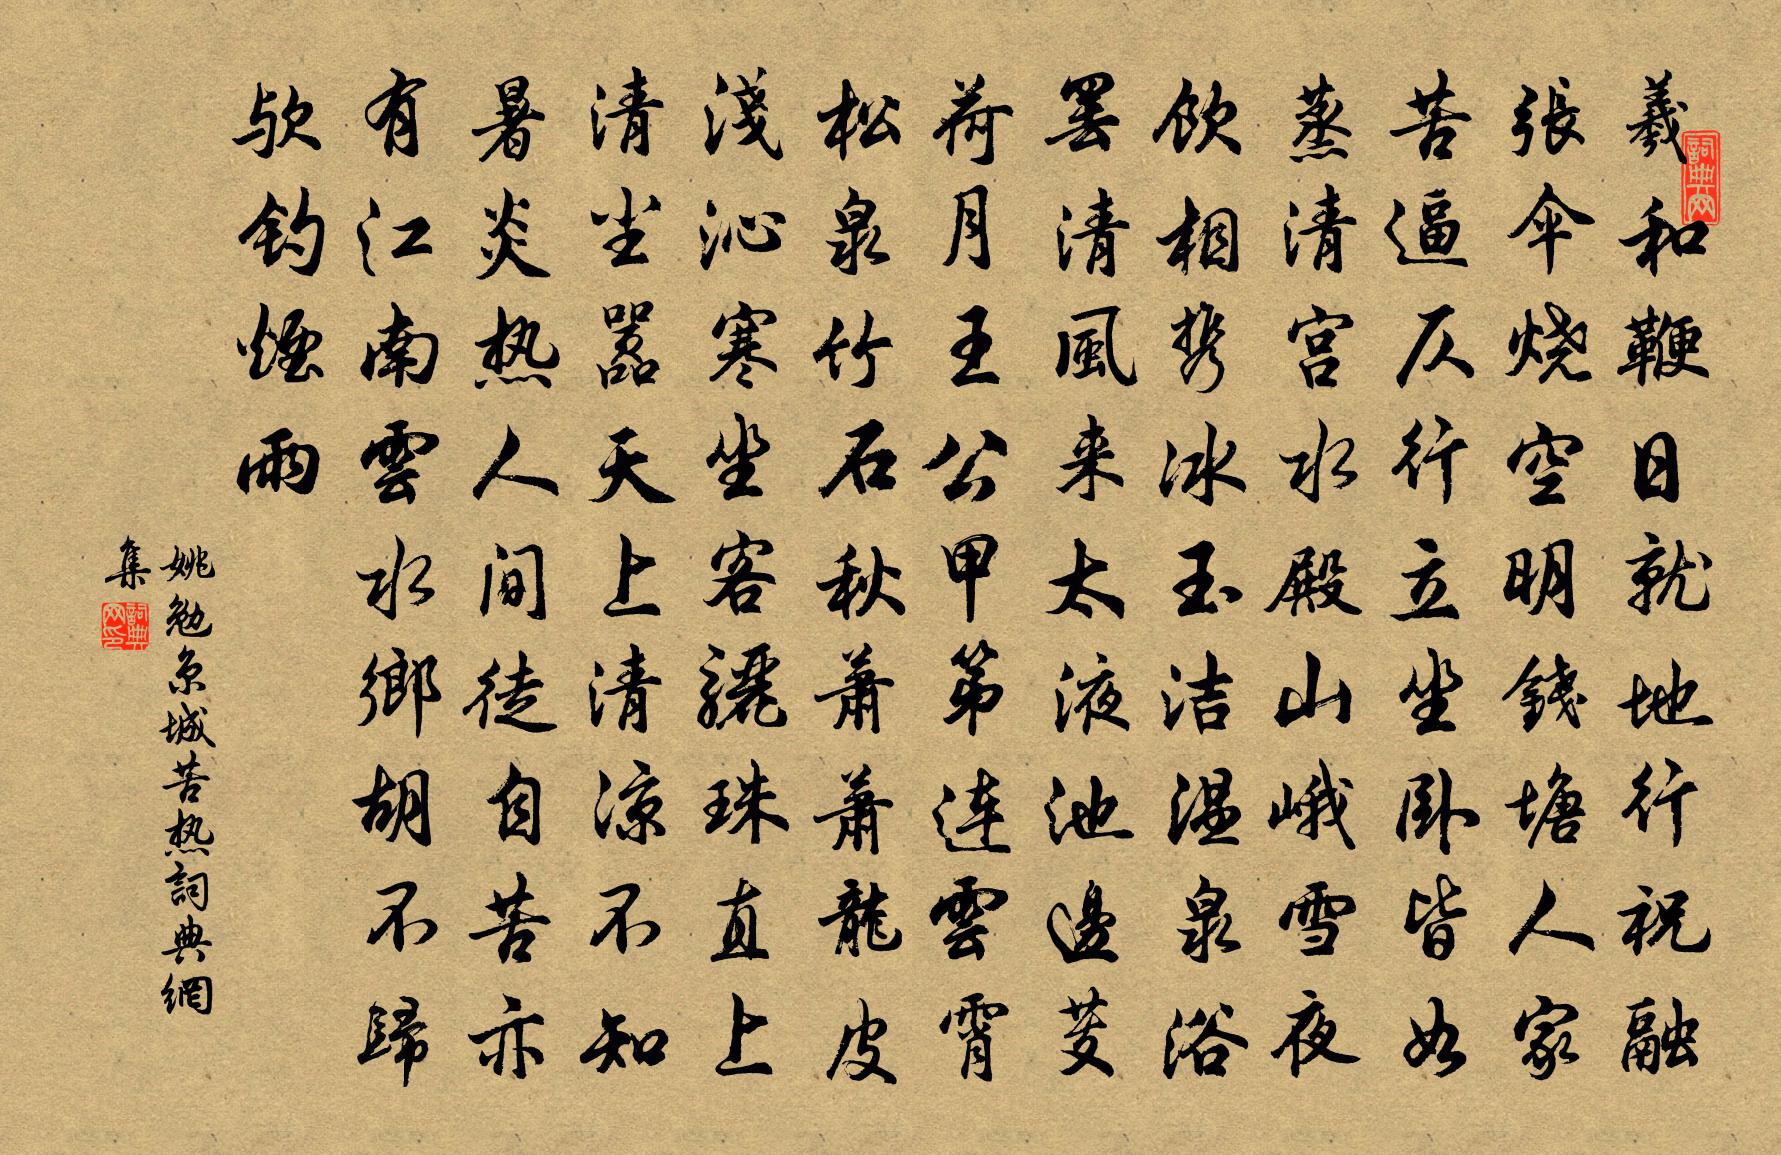 羲和鞭日就地行祝融
張伞烧空明錢塘人家
苦逼仄行立坐卧皆如
蒸清宫水殿山峨雪夜
飲相携冰玉洁温泉浴
罢清風来太液池邊芰
荷月王公甲第連雲霄
松泉竹石秋萧萧龍皮
淺沁寒坐客驪珠直上
清尘嚣天上清凉不知
暑炎热人间徒自苦亦
有江南雲水鄉胡不歸
欤钓煙雨
姚勉京城苦热詞典網
集
詞典网
詞典网印